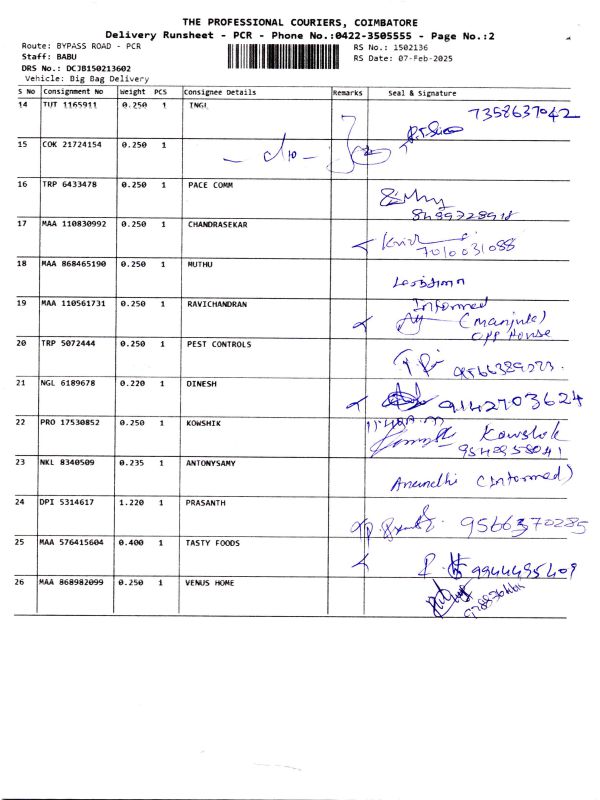 THE PROFESSIONAL COURIERS, COIMBATORE
Delivery Runsheet - PCR - Phone No.:0422-3505555 - Page No.:2
Route: BYPASS ROAD - PCR RS No.: 1502136
Staff: BABU RS Date: 07-Feb-2025
DRS No.: DCJB150213602
Vehicle: Big Bag Delivery
S No Consignment No Weight PCS Consignee Details Remarks Seal & Signature
14 TUT 1165911 0.250 1 INGL 7358637042
15 COK 21724154 0.250 1
16 TRP 6433478 0.250 1 PACE COMM
17 MAA 110830992 0.250 1 CHANDRASEKAR
7010031088
18 MAA 868465190 0.250 1 MUTHU
19 MAA 110561731 0.250 1 RAVICHANDRAN Informed
(Manjula)
opp House
20 TRP 5072444 0.250 1 PEST CONTROLS
21 NGL 6189678 0.220 1 DINESH 9142703624
22 PRO 17530852 0.250 1 KOWSHIK Kowshik
23 NKL 8340509 0.235 1 ANTONYSAMY (Informed)
24 DPI 5314617 1.220 1 PRASANTH 9566370285
25 MAA 576415604 0.400 1 TASTY FOODS 9944495409
26 MAA 868982099 0.250 1 VENUS HOME